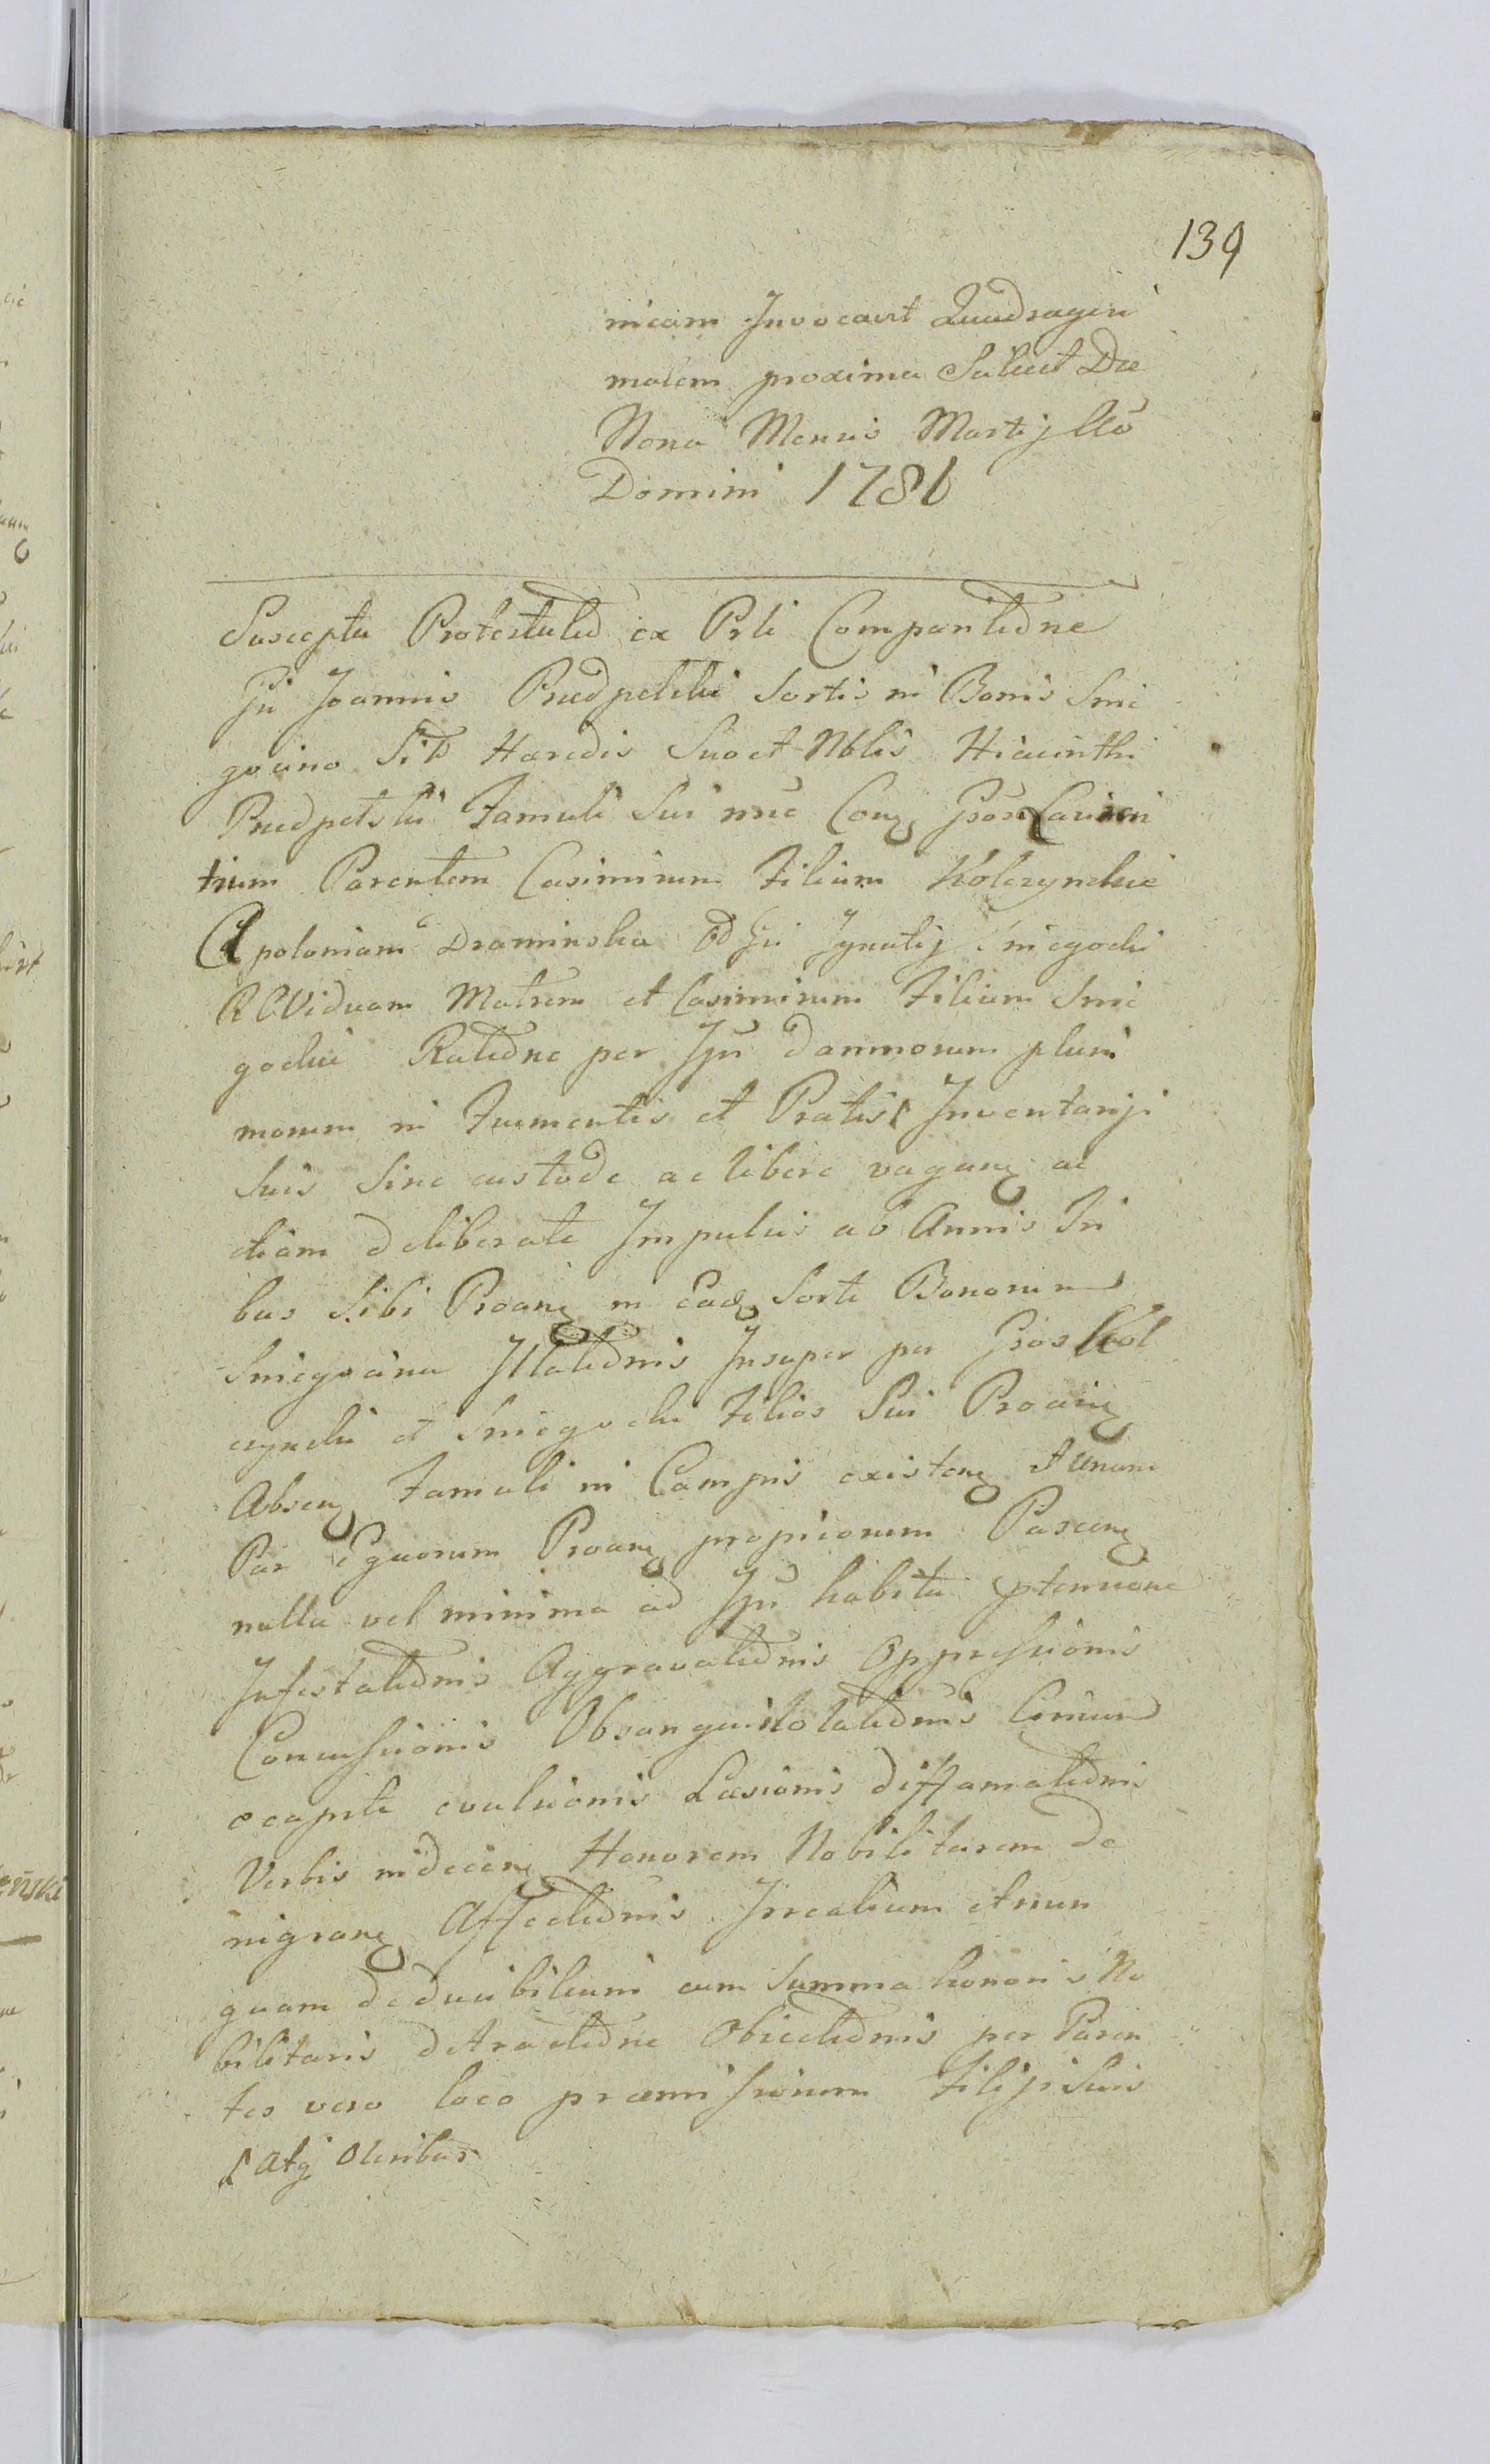 139
nicam Invocavit Quadragesi
malem proxima Salicet Die
Nona Mensis Martij Ao
Domini 1781
Suscepta Protestatio ex Prli Comparitione
Gsi Joannis Rudpelski Sortis in Bonis Smie
gocino Sito Haredis Suo et Nblis Hiacinthi
Rudpelski Famuli Sui nne Conq Gsos Laurem
tium Parentem Casimirum Filium Kolczynskie
Apoloniam Draminska od Gsi Ignatij Smiegocki
RC Viduam Matrem et Casimirum Filium Smie
gockie Ratione per Ips Damnorum pluri
morum in Frumentis et Pratis Inventarijs
Suis Sine custode ac libere vagan ac
etiam deliberate Impulsis ab Annis Tri
bus Sibi Proan in Ead Sorte Bonorum
Smiegocina Illationis Insuper per Gsos Kol
czynski et Smiegocki Filios Sui Procin
Absen Famuli in Campis existen et Unum
Par Equorum Proan propriorum Pascen
nulla vel minima ad Ips habita ptensione
Infestationis Aggravationis Oppressionis
Concussionis Obsanguilotationis Crinium
e capite evulsionis Læsionis diffamationis
Verbis indecen Honorem Nobilitarem de
nigran Affectionis Irrealium et nun
quam deducibilium cum Summa honoris No
bilitaris detractione Obiectionis per Paren
tes vero loco præmissorum Filijs Suis
Atq Oleribus